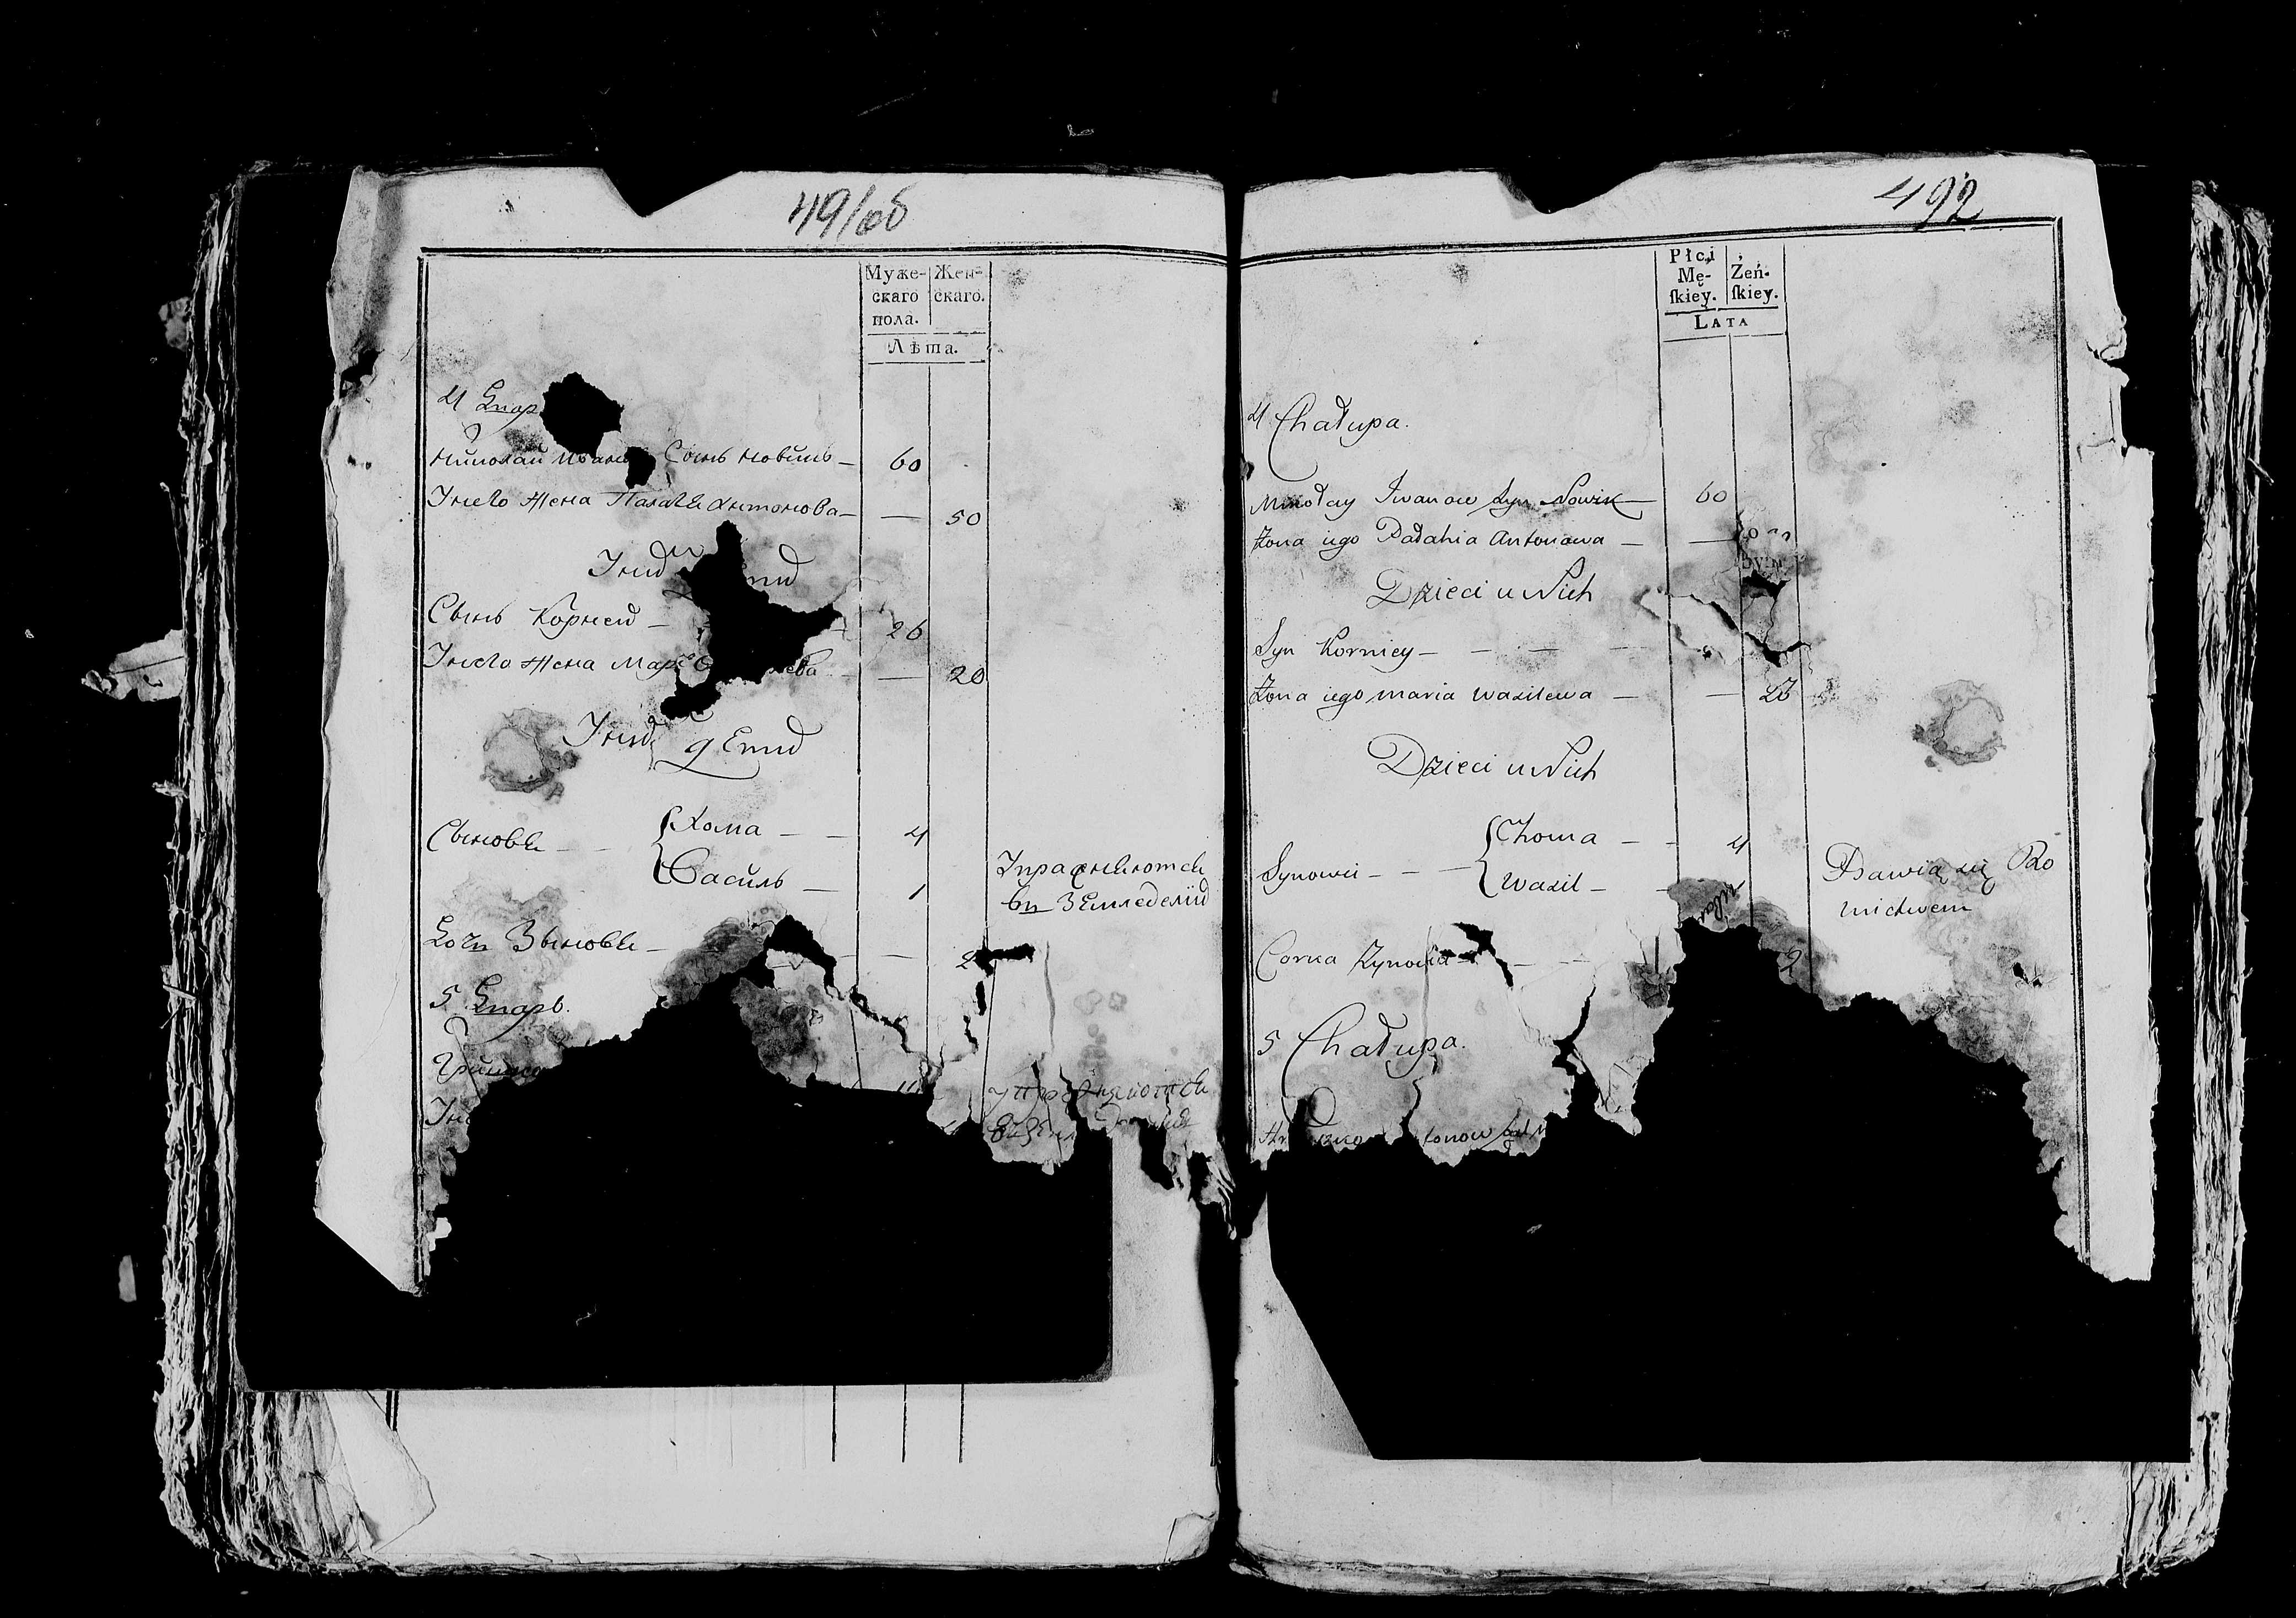 491об
Муже- Жен-
скаго скаго.
пола.
Лѣта.
4 Двор
Николай Ивано Сынъ Новикъ — 60
У него Жена Палагея Антонова — — 50
У них
Сынъ Корней — 26
У него Жена Мар — 20
У них детей
Сыновья — Хома — — 4
Василь — 1
Упражняются
въ Земледелии
Дочь Зыновья — — 2
5 Дворъ.
Упражняются
492
Płci
Mę- Żeń-
ſkiey. ſkiey.
LATA
4 Chałupa.
Mikołay Iwanow Syn Nowik — 60
Żona iego Pałahia Antonowa — —
Dzieci u Nich
Syn Korniey — — — —
Żona iego Maria Wasilewa — —
Dzieci u Nich
Synowie — — — Choma — — 4
Wasil — —
Bawią się Ro
lnictwem
Corka Zynowia — — — 2
5 Chałupa.